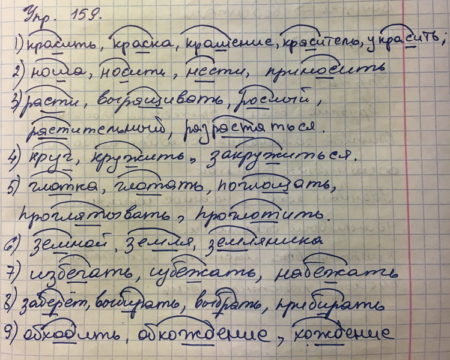 Упр. 159.
1) красить, краска, крашение, краситель, украсить;
2) ноша, носить, нести, приносить
3) расти, выращивать, рослый,
растительный, разрастаться.
4) круг, кружить, закружиться.
5) глотка, глотать, поглощать,
проглатывать, проглотить.
6) земной, земля, земляника
7) избегать, избежать, набежать
8) заберёт, выбирать, выбрать, прибирать
9) обходить, обхождение, хождение